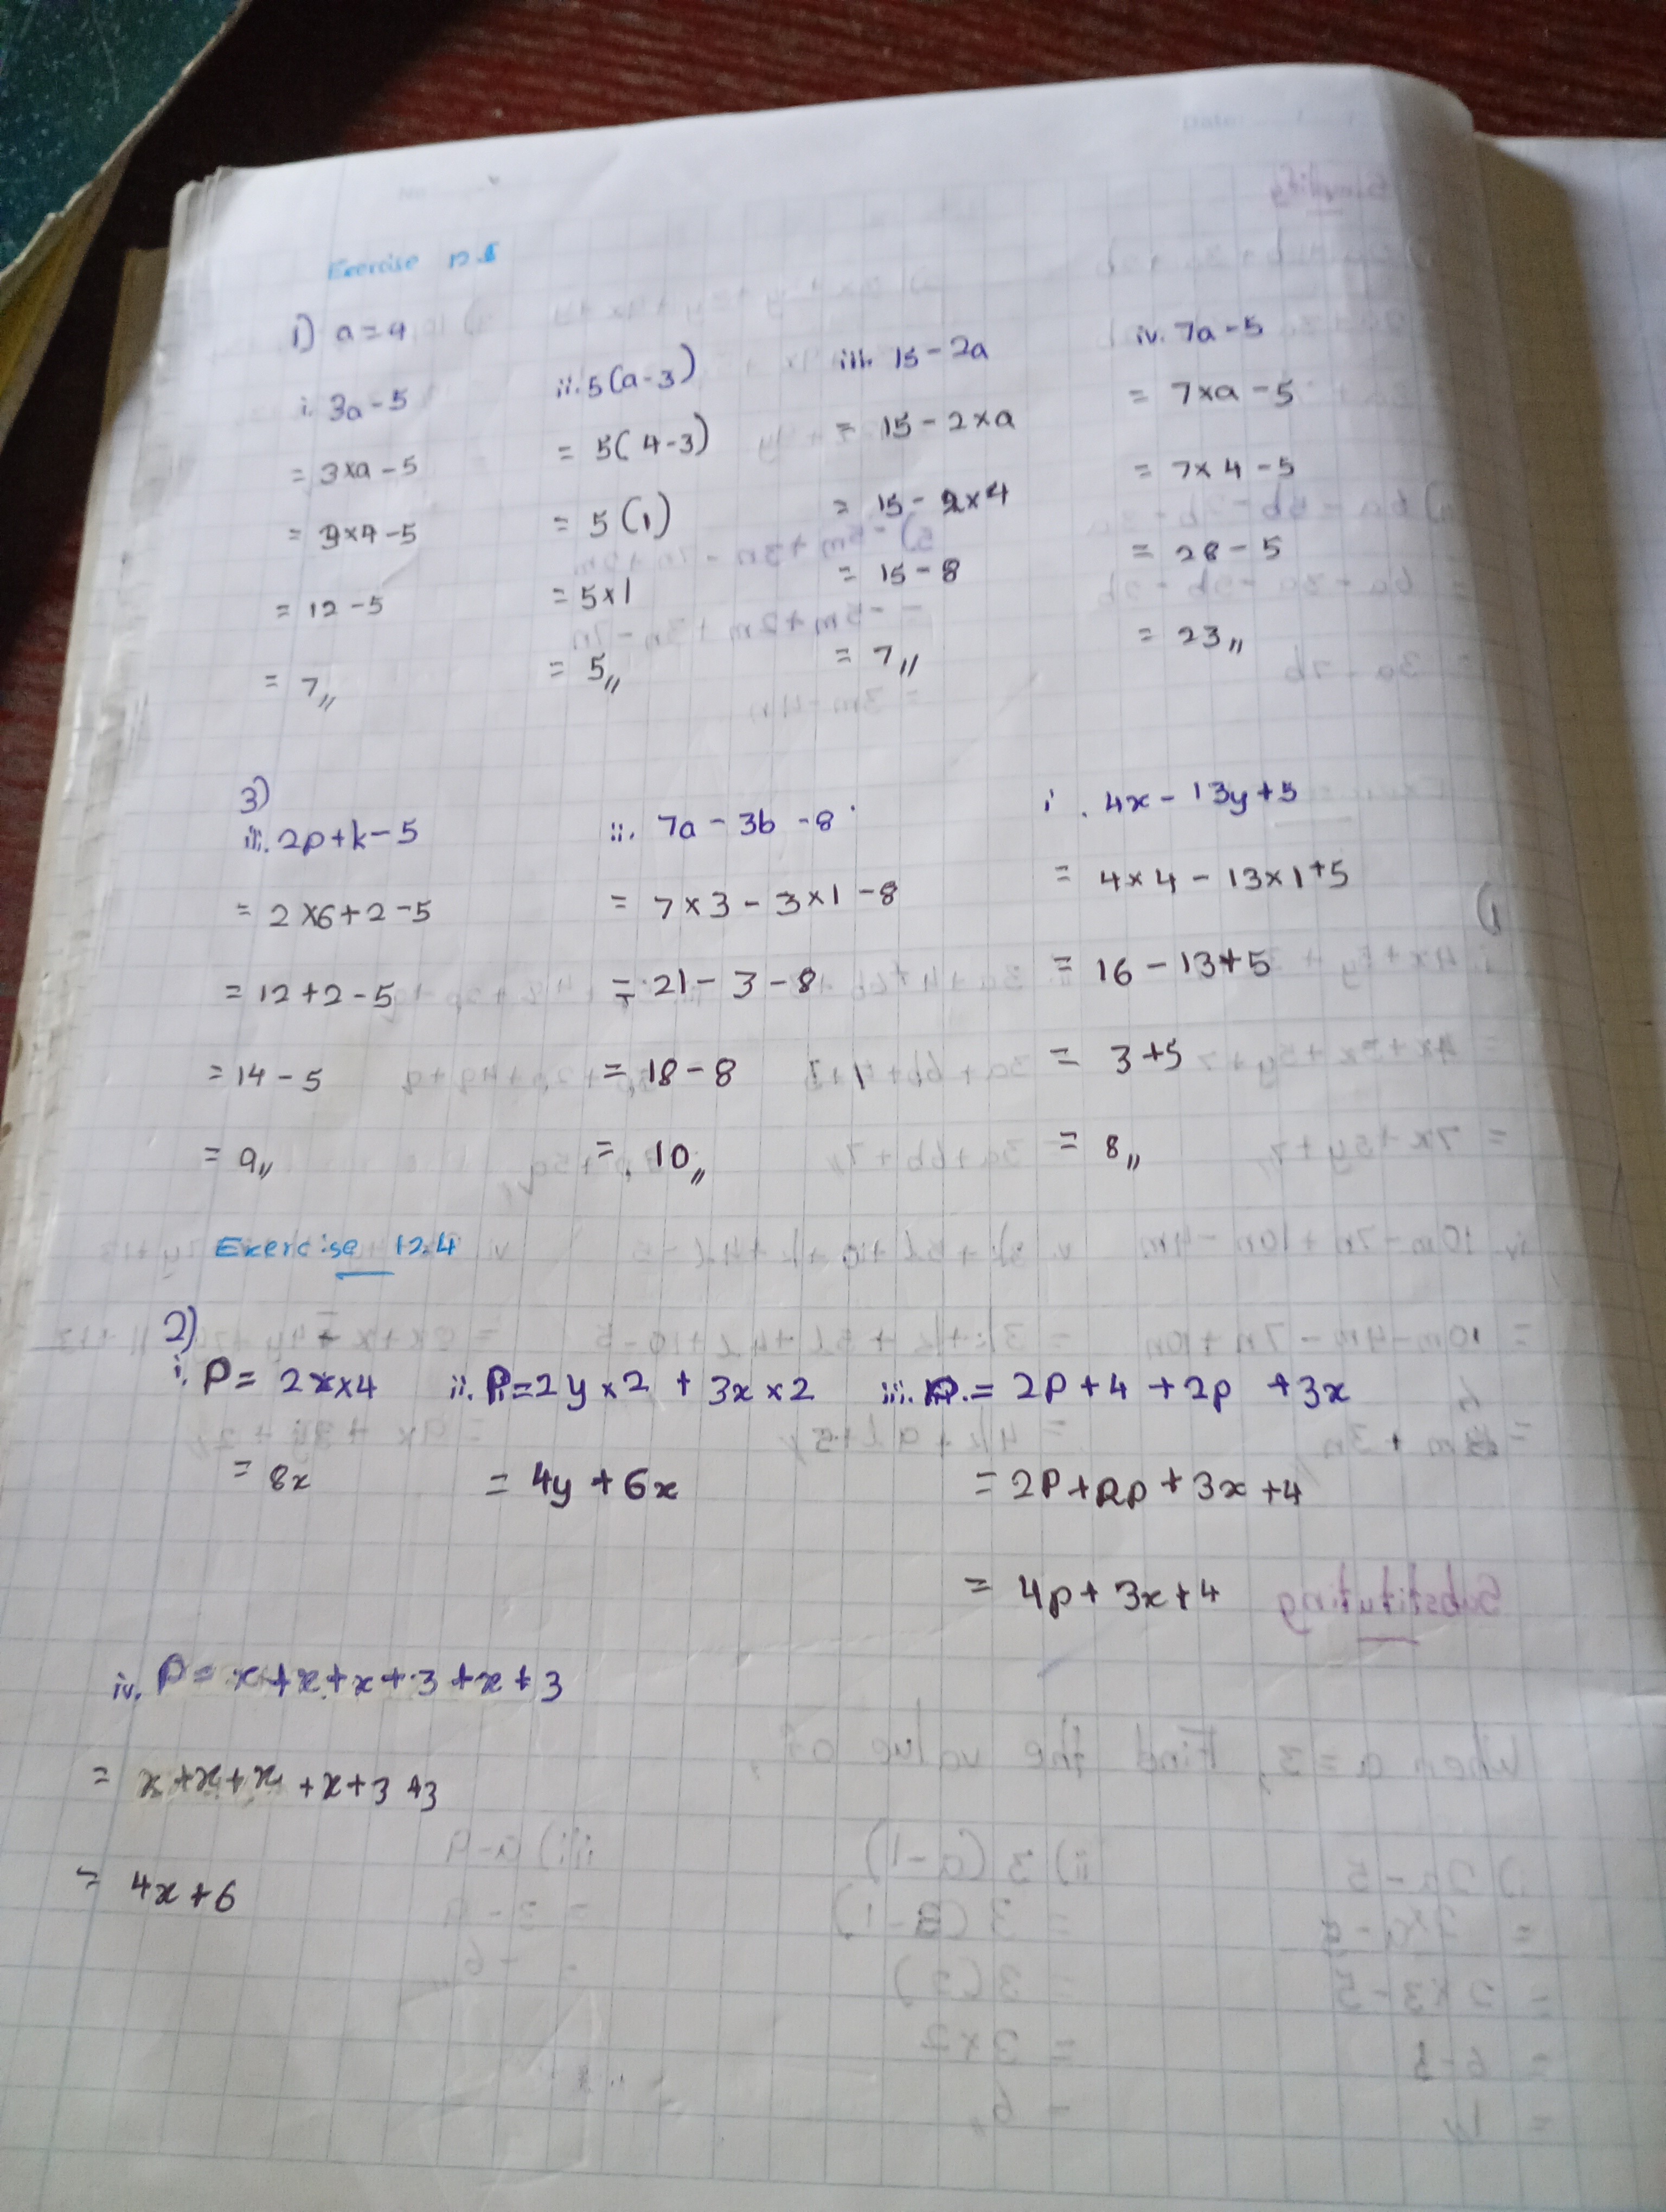 Exercise 12.5
1) a = 4
i. 3a - 5
= 3×a - 5
= 3×4 - 5
= 12 - 5
= 7,,
ii. 5(a-3)
= 5(4-3)
= 5(1)
= 5×1
= 5,,
iii. 15 - 2a
= 15 - 2×a
= 15 - 2×4
= 15 - 8
= 7,,
iv. 7a - 5
= 7×a - 5
= 7×4 - 5
= 28 - 5
= 23,,
3)
iii. 2p+k-5
= 2×6+2-5
= 12+2-5
= 14-5
= 9,,
ii. 7a - 3b - 8
= 7×3 - 3×1 - 8
= 21 - 3 - 8
= 18 - 8
= 10,,
i. 4x - 13y+5
= 4×4 - 13×1+5
= 16 - 13+5
= 3+5
= 8,,
Exercise 12.4
2)
i. P = 2x×4
= 8x
ii. P = 2y×2 + 3x×2
= 4y + 6x
iii. P = 2p+4+2p+3x
= 2p+2p+3x+4
= 4p+3x+4
iv. P = x+x+x+3+x+3
= x+x+x+x+3+3
= 4x+6